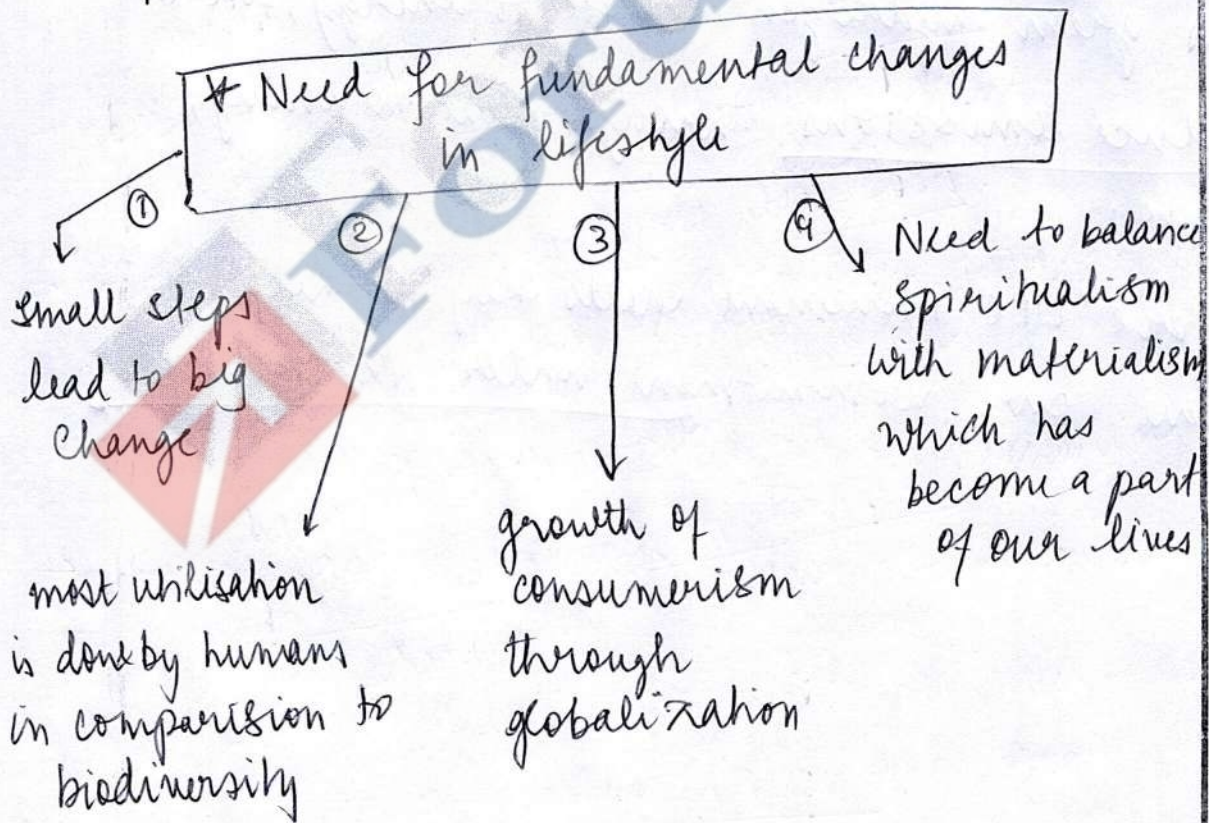 * Need for fundamental changes
in lifestyle
①
Small steps
lead to big
Change
②
most utilisation
is done by humans
in comparision to
biodiversity
③
growth of
consumerism
through
globalization
④
Need to balance
spiritualism
with materialism
which has
become a part
of our lives
Foru